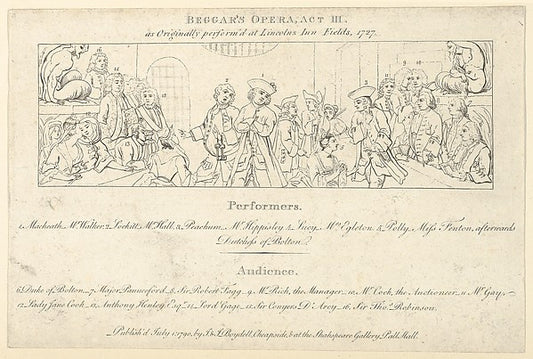 BEGGAR'S OPERA, ACT III.
as Originally perform'd at Lincolns Inn Fields, 1727.
Performers.
1, Macheath, Mr. Walker, 2, Lockitt, Mr. Hall, 3, Peachum, Mr. Hippisley, 4, Lucy, Mrs. Egleton, 5, Polly, Miss Fenton, afterwards
Dutchess of Bolton.
Audience.
6, Duke of Bolton, 7, Major Pauncford, 8, Sir Robert Fagg, 9, Mr. Rich, the Manager, 10, Mr. Cock, the Auctioneer, 11, Mr. Gay,
12, Lady Jane Cook, 13, Anthony Henley, Esqr. 14, Lord Gage, 15, Sir Conyers D'Arcy, 16, Sir Thos. Robinson.
Publish'd July 1, 1790, by J. & J. Boydell, Cheapside, & at the Shakspeare Gallery, Pall Mall.